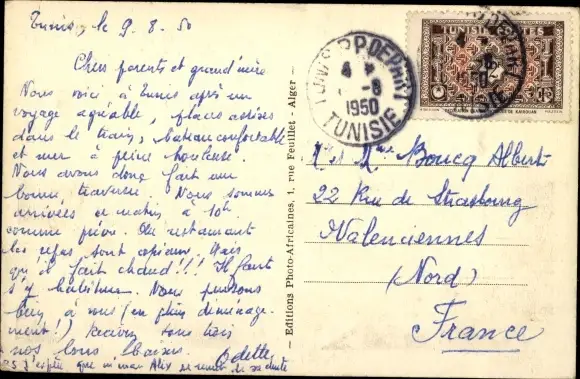 Tunis, le 9. 8. 50
Chers parents et grand'mère
Nous voici à Tunis après un
voyage agréable, places assises
dans le train, bateau confortable
et mer à peine houleuse.
Nous avons donc fait une
bonne traversée. Nous sommes
arrivées ce matin à 10h
comme prévu. Au restaurant
les repas sont copieux. Mais
qu'il fait chaud!!! Il faut
s'y habituer. Nous pensons
bien à vous (en plein déménage-
ment!) Recevez tous trois
nos bons baisers. Odette
que maman Alex se remet de sa chute
— Editions Photo-Africaines, 1, rue Feuillet - Alger —
TUNIS R.P. DEPART
1950
TUNISIE
TUNISIE
POSTES
Mr et Mme Boucq Albert
22 Rue de Strasbourg
Valenciennes
(Nord)
France